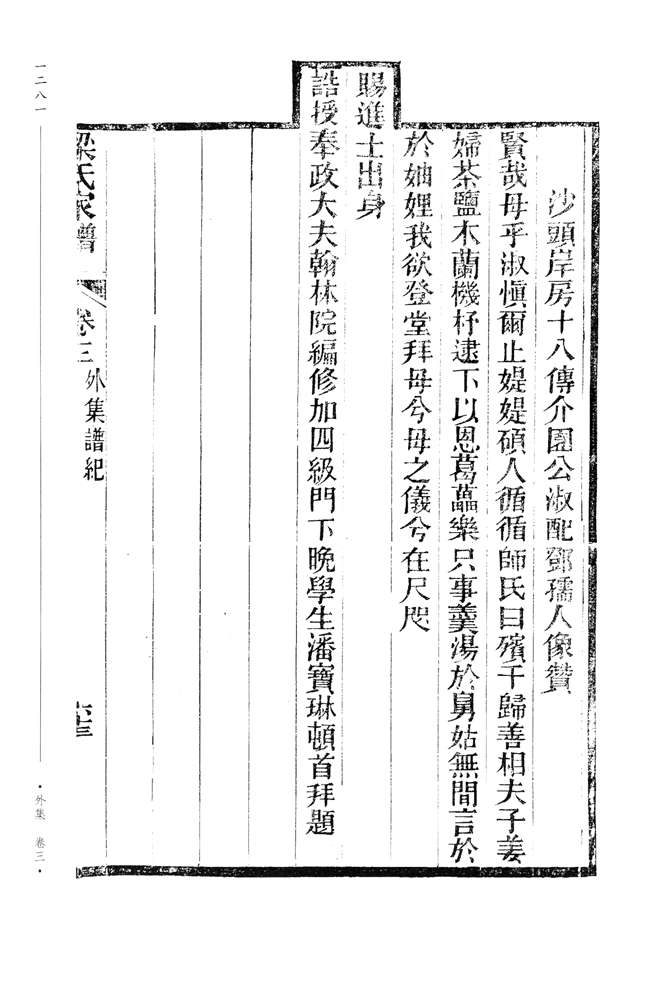 沙頭岸房十八傳介園公淑配鄧孺人像贊
賢哉母乎淑慎爾止媞媞碩人循循師氏曰殯于歸善相夫子姜
婦茶鹽木蘭機杼逮下以恩葛藟樂只事羹湯於舅姑無間言於
於妯娌我欲登堂拜母兮母之儀兮在尺咫
賜進士出身
誥授奉政大夫翰林院編修加四級門下晚學生潘寶琳頓首拜題
梁氏家譜 卷三 外集譜紀
一二八一
·外集 卷三·